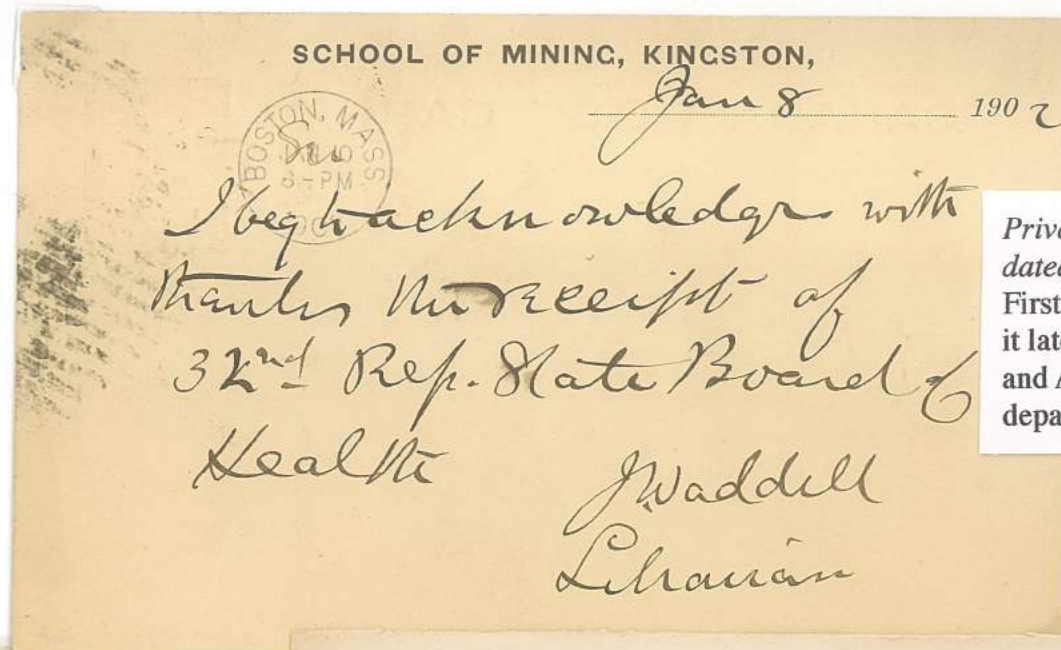 SCHOOL OF MINING, KINGSTON,
Jan 8 1902
BOSTON, MASS
3-PM
Sir
I beg to acknowledge with
thanks the receipt of
32nd Rep. State Board of
Health
J Waddell
Librarian
Priva
dated
First
it lat
and A
depa